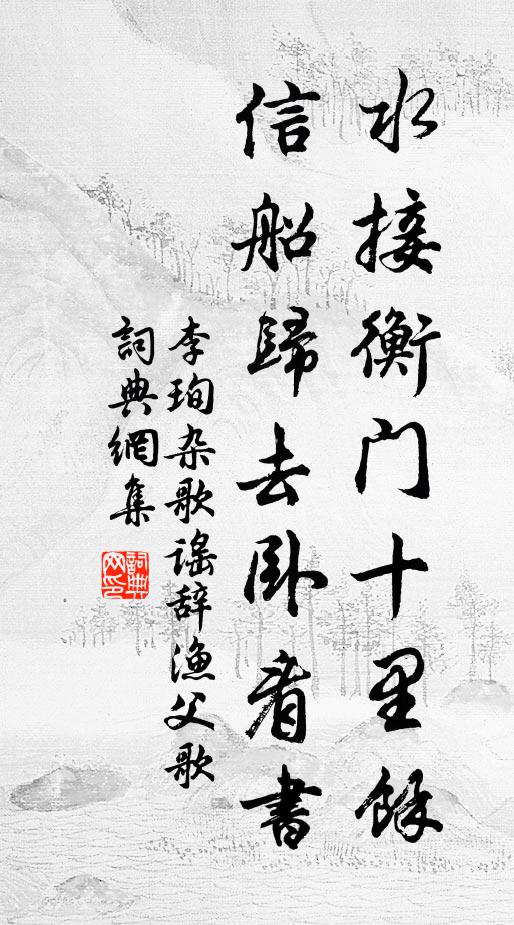 水接衡门十里馀
信船歸去卧看書
李珣杂歌谣辞漁父歌
詞典網集
詞典网印